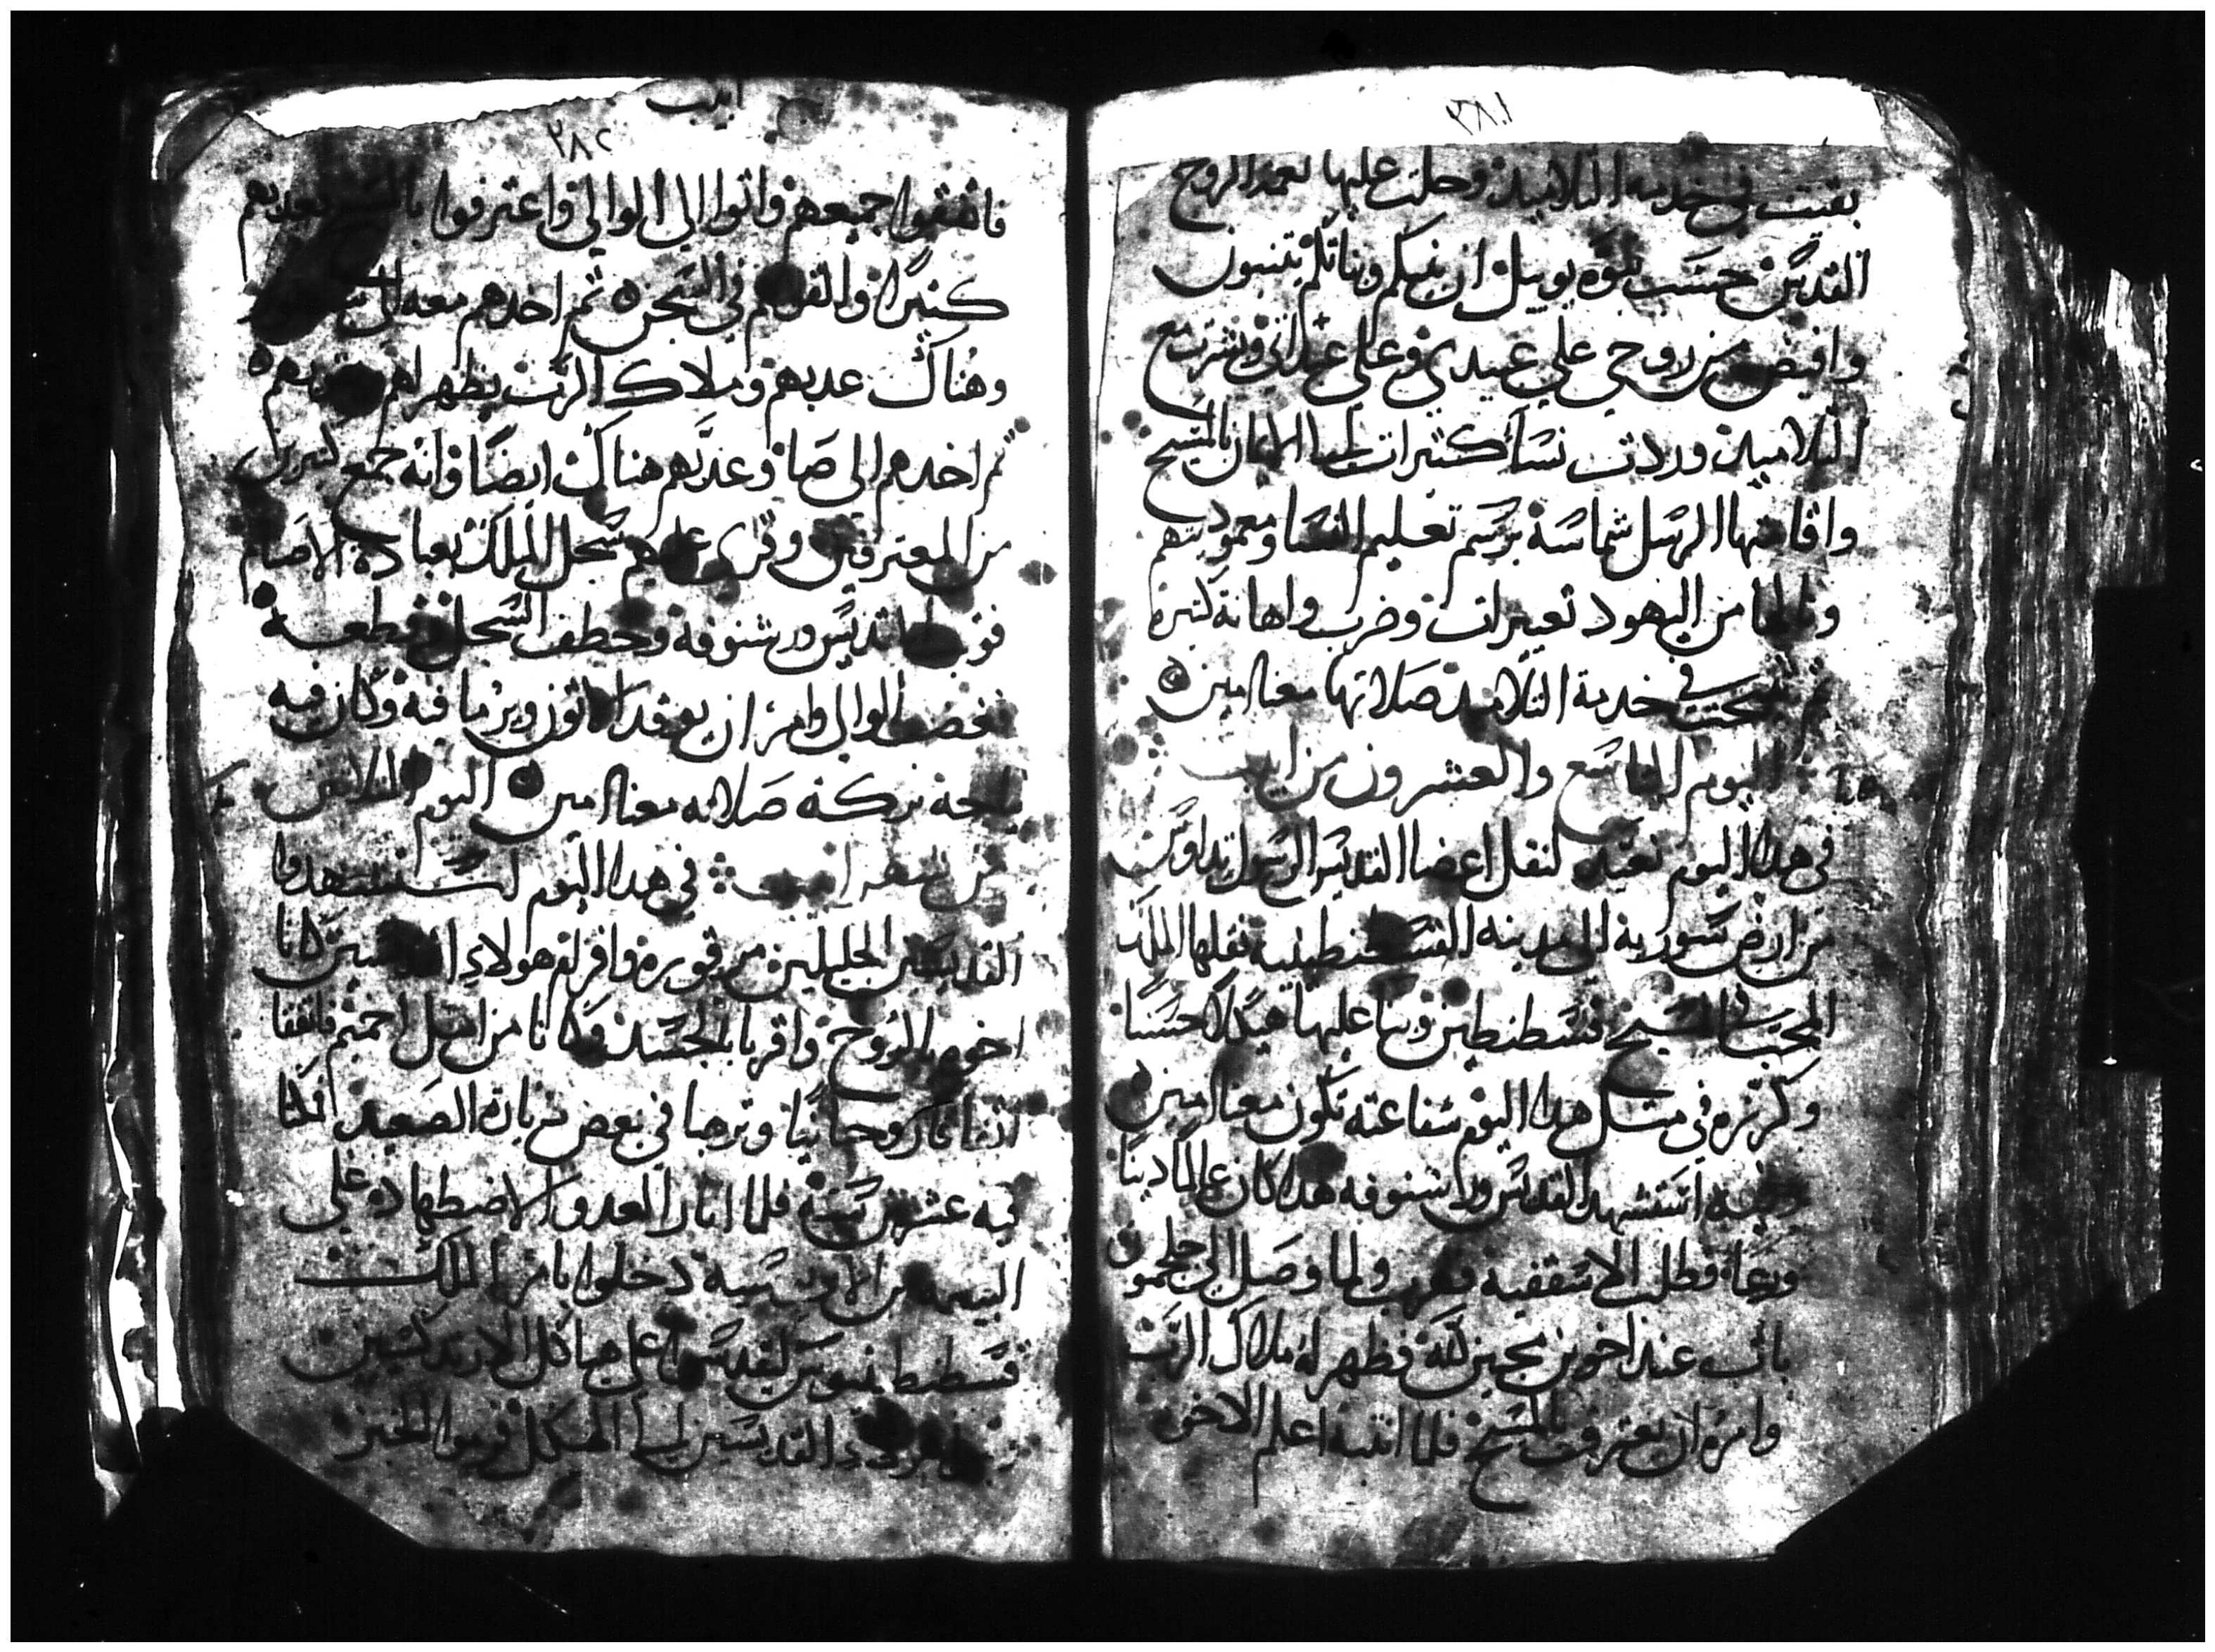 ٢٨١
بقيت في خدمه التلاميد وحلت عليها نعمة الروح
القدس حسب نبوه يوييل ان بنيكم وبناتكم يتنبون
وافيض من روحي علي عبيدي وعلي عبداتي وبشرت مع
التلاميد وردت نسا كثيرات الي الايمان بالمسيح
واقامتها الرسل شماسة برسم تعليم النسا ومعموديتهم
ونالها من اليهود تعييرات وضرب واهانة كثيره
ثم تنيحت في خدمة التلاميد صلاتها معنا امين
اليوم التاسع والعشرون من ابيب
في هدا اليوم نعيد لنقل اعضا القديس الرسول تداوس
من ارض سورية الي مدينه القسطنطينية نقلها الملك
المحب في المسيح قسطنطين وبنا عليها هيكلا حسنا
وكرزه في متل هدا اليوم شفاعته تكون معنا امين
وفيه استشهد القديس ورشنوفه هدا كان عالما دينا
وطلب الاسقفيه فهرب ولما وصل الي
بات عند اخوين محبين لله فظهر له ملاك الرب
وامره ان يعترف بالمسيح فلما انتبه اعلم الاخوين
ابيب
٢٨٢
فاتفقوا جميعهم واتوا الي الوالي واعترفوا بالمسيح فعدبهم
كثيرا والقاهم في السجن ثم اخدهم معه الي
وهناك عدبهم وملاك الرب يظهر لهم
ثم اخدهم الي صا وعدبهم هناك ايضا وانه جمع كثيرا
من المعترفين وقري عليهم سجل الملك بعبادة الاصنام
فوثب القديس ورشنوفه وخطف السجل وقطعه
فغضب الوالي وامر ان يوقد اتون ويرما فيه وكان فيه
بركة صلاته معنا امين اليوم التلاتين
من شهر ابيب في هدا اليوم استشهدوا
القديسين الجليلين مرقوره وافرام هولاء القديسين كانا
اخوه بالروح واقربا بالجسد وكانا من اهل اخميم فاتفقا
اتفاقا روحانيا وترهبا في بعض ديارة الصعيد اقاما
فيه عشرين سنة فلما اثار العدو الاضطهاد علي
البيعه من الاريوسيه دخلوا بامر الملك
قسطنطينوس ليقدسوا علي هياكل الارتدكسيين
القديسين الي الهيكل الخبز